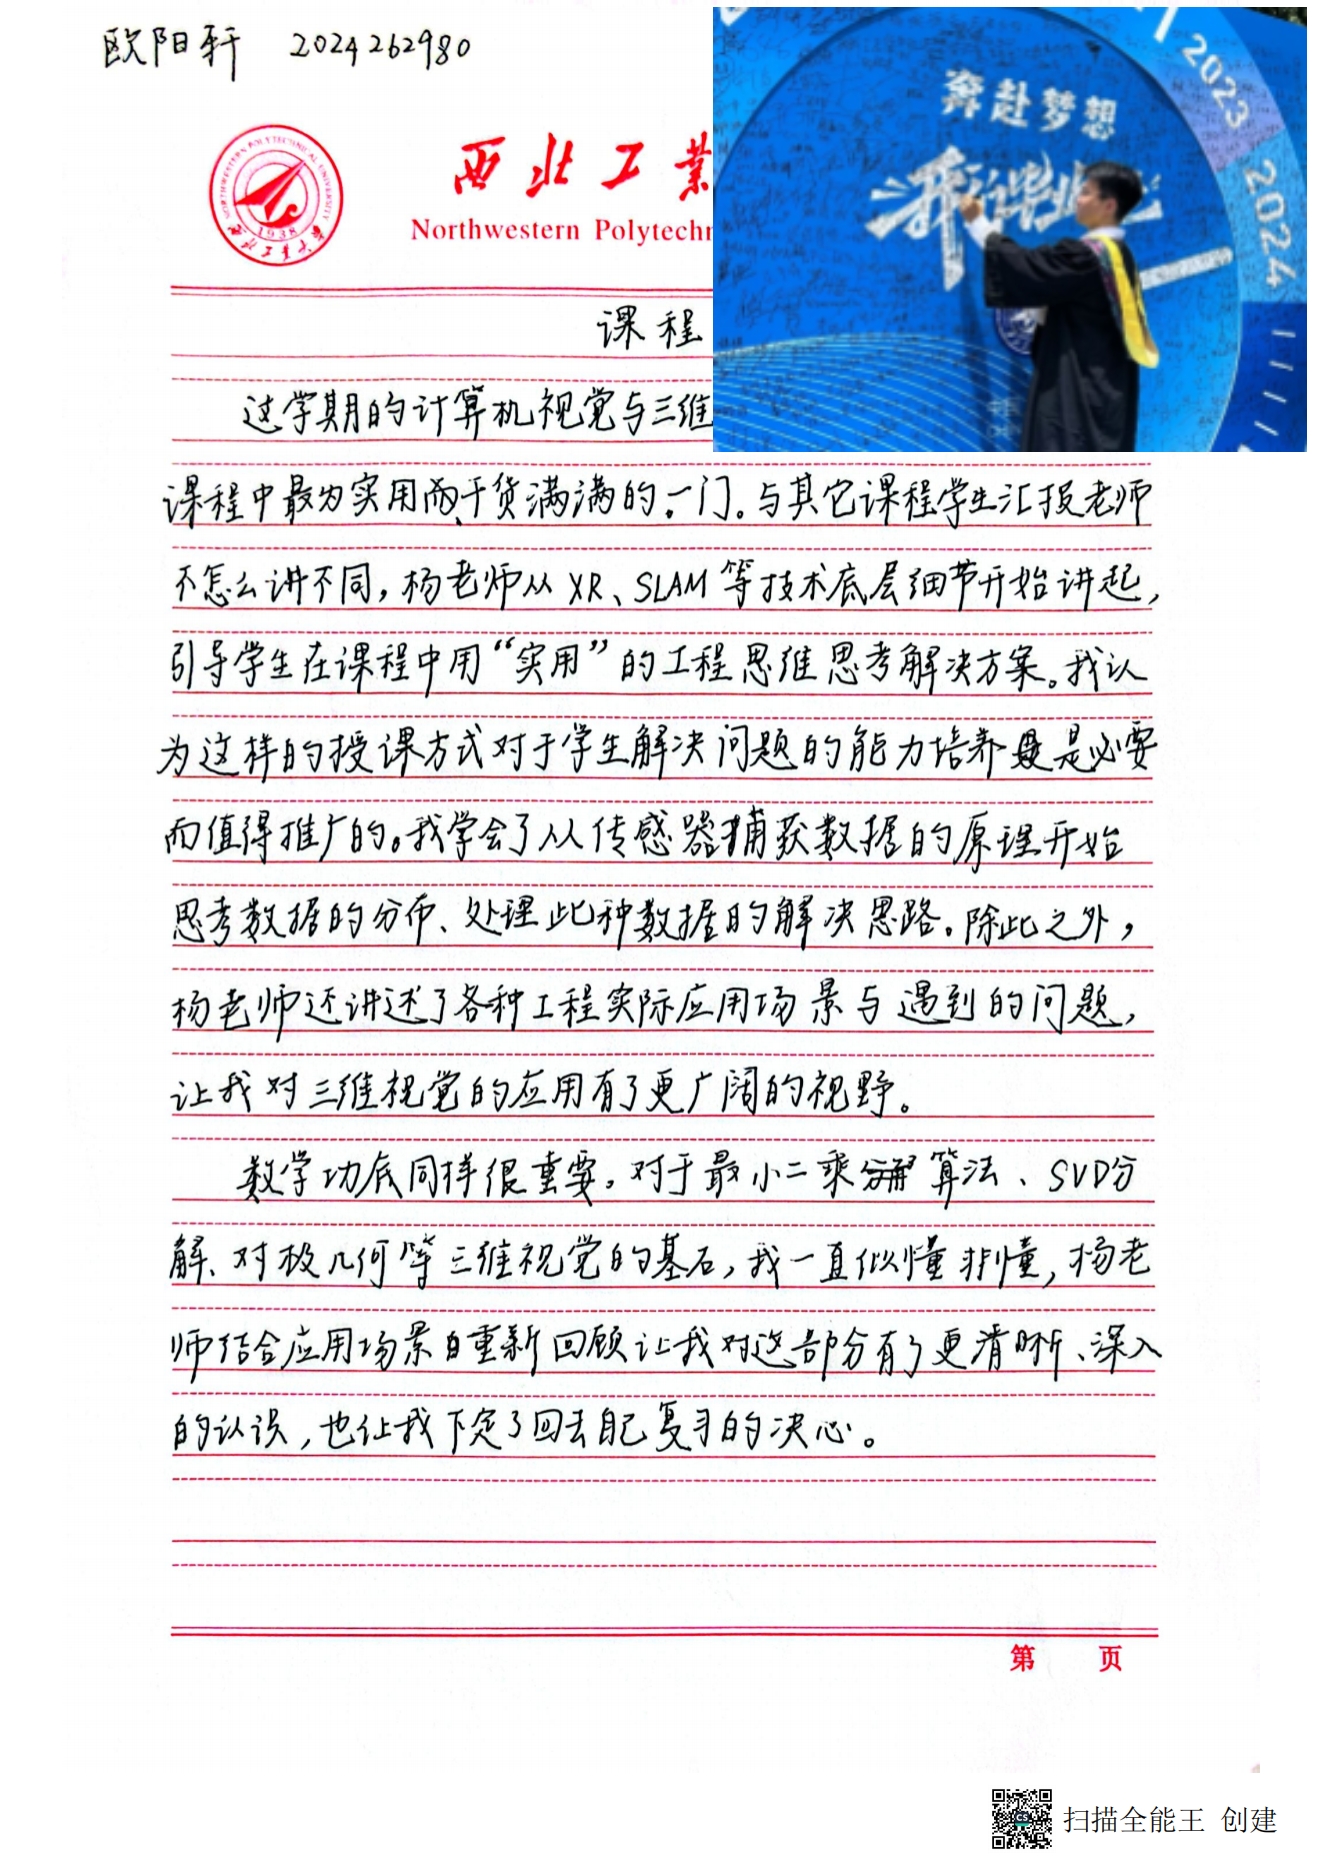 欧阳轩 2024262980
西北工業
Northwestern Polytechn
NORTHWESTERN POLYTECHNICAL UNIVERSITY
1938
西北工业大学
奔赴梦想
2023
2024
课程
过学期的计算机视觉与三维
课程中最为实用而干货满满的一门。与其它课程学生汇报老师
不怎么讲不同，杨老师从XR、SLAM等技术底层细节开始讲起，
引导学生在课程中用“实用”的工程思维思考解决方案。我认
为这样的授课方式对于学生解决问题的能力培养是必要
而值得推广的。我学会了从传感器捕获数据的原理开始
思考数据的分布、处理此种数据的解决思路。除此之外，
杨老师还讲述了各种工程实际应用场景与遇到的问题，
让我对三维视觉的应用有了更广阔的视野。
数学功底同样很重要。对于最小二乘算法、SVD分
解、对极几何等三维视觉的基石，我一直似懂非懂，杨老
师结合应用场景重新回顾让我对这部分有了更清晰、深入
的认识，也让我下定了回去自己复习的决心。
第 页
CS
扫描全能王 创建